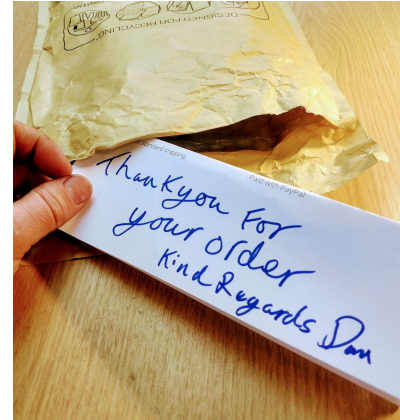 DESIGNED FOR RECYCLING
Standard shipping
Paid with PayPal
Thankyou For
your order
Kind Regards Dan